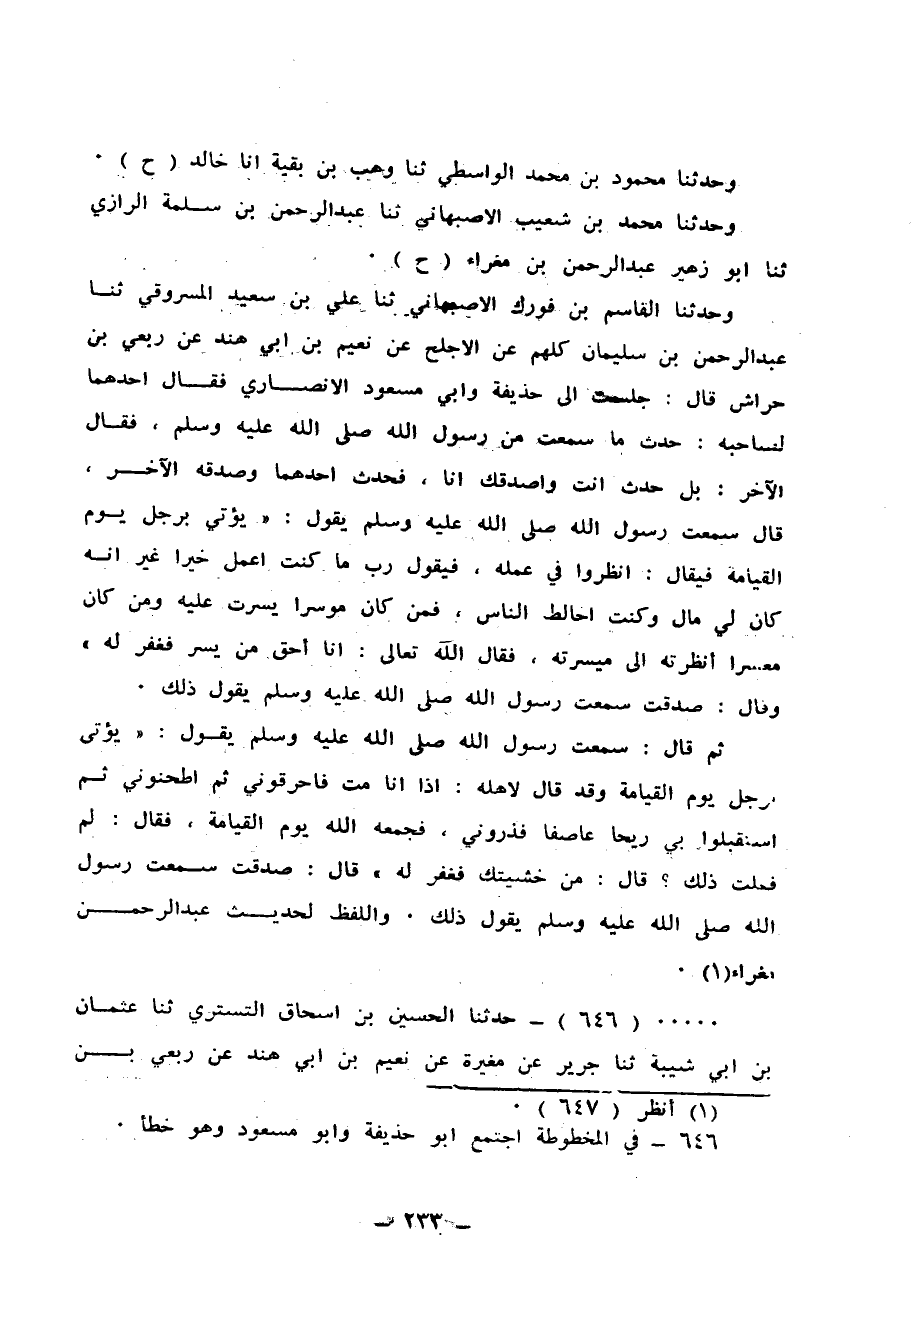 وحدثنا محمود بن محمد الواسطي ثنا وهب بن بقية انا خالد ( ح ) ٠
وحدثنا محمد بن شعيب الاصبهاني ثنا عبدالرحمن بن سـلمة الرازي
ثنا ابو زهير عبدالرحمن بن مغراء ( ح ) ٠
وحدثنا القاسم بن فورك الاصبهاني ثنا علي بن سعيد المسروقي ثنـا
عبدالرحمن بن سليمان كلهم عن الاجلح عن نعيم بن ابي هند عن ربعي بن
حراش قال : جلست الى حذيفة وابي مسعود الانصـاري فقـال احدهما
لصاحبه : حدث ما سمعت من رسول الله صلى الله عليه وسلم ، فقـال
الآخر : بل حدث انت واصدقك انا ، فحدث احدهما وصدقه الآخـر ،
قال سمعت رسول الله صلى الله عليه وسلم يقول : « يؤتي برجل يـوم
القيامة فيقال : انظروا في عمله ، فيقول رب ما كنت اعمل خيرا غير انـه
كان لي مال وكنت اخالط الناس ، فمن كان موسرا يسرت عليه ومن كان
معسرا أنظرته الى ميسرته ، فقال الله تعالى : انا أحق من يسر فغفر له »
وقال : صدقت سمعت رسول الله صلى الله عليه وسلم يقول ذلك ٠
ثم قال : سمعت رسول الله صلى الله عليه وسلم يقـول : « يؤتى
برجل يوم القيامة وقد قال لاهله : اذا انا مت فاحرقوني ثم اطحنوني ثـم
استقبلوا بي ريحا عاصفا فذروني ، فجمعه الله يوم القيامة ، فقال : لم
فعلت ذلك ؟ قال : من خشيتك فغفر له » قال : صدقت سـمعت رسول
الله صلى الله عليه وسلم يقول ذلك ٠ واللفظ لحديـث عبدالرحمـن
لغراء(١) ٠
٠٠٠٠٠ ( ٦٤٦ ) ـ حدثنا الحسين بن اسحاق التستري ثنا عثمـان
بن ابي شيبة ثنا جرير عن مغيرة عن نعيم بن ابي هند عن ربعي بـن
(١) أنظر ( ٦٤٧ ) ٠
٦٤٦ ـ في المخطوطة اجتمع ابو حذيفة وابو مسعود وهو خطأ ٠
ـ ٢٣٣ ـ